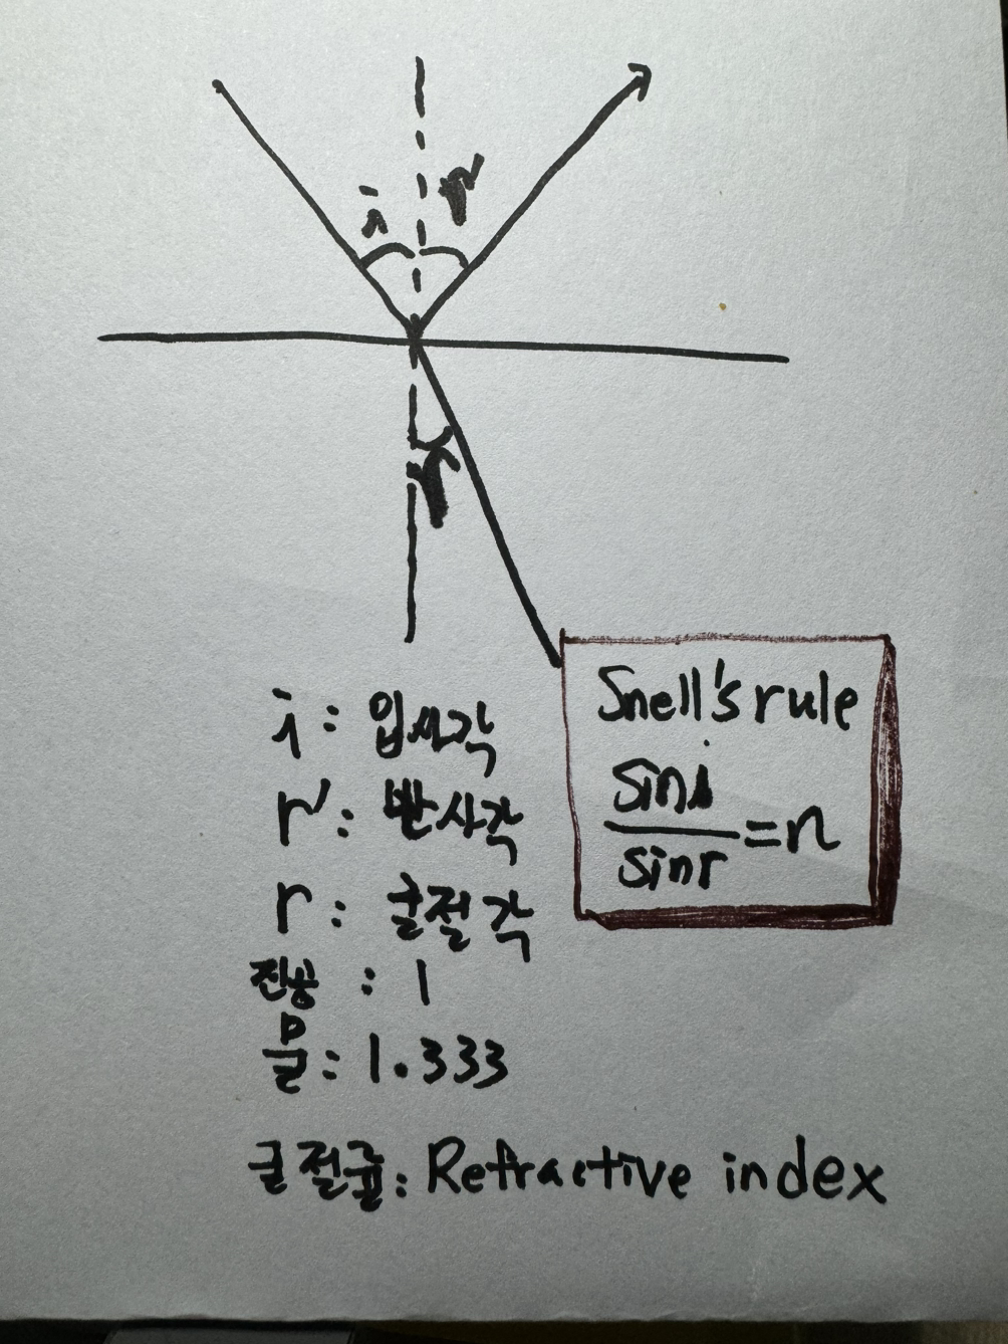 i
r'
r
Snell's rule
sin i
sin r
=n
i: 입사각
r': 반사각
r: 굴절각
진공: 1
물: 1.333
굴절률: Refractive index